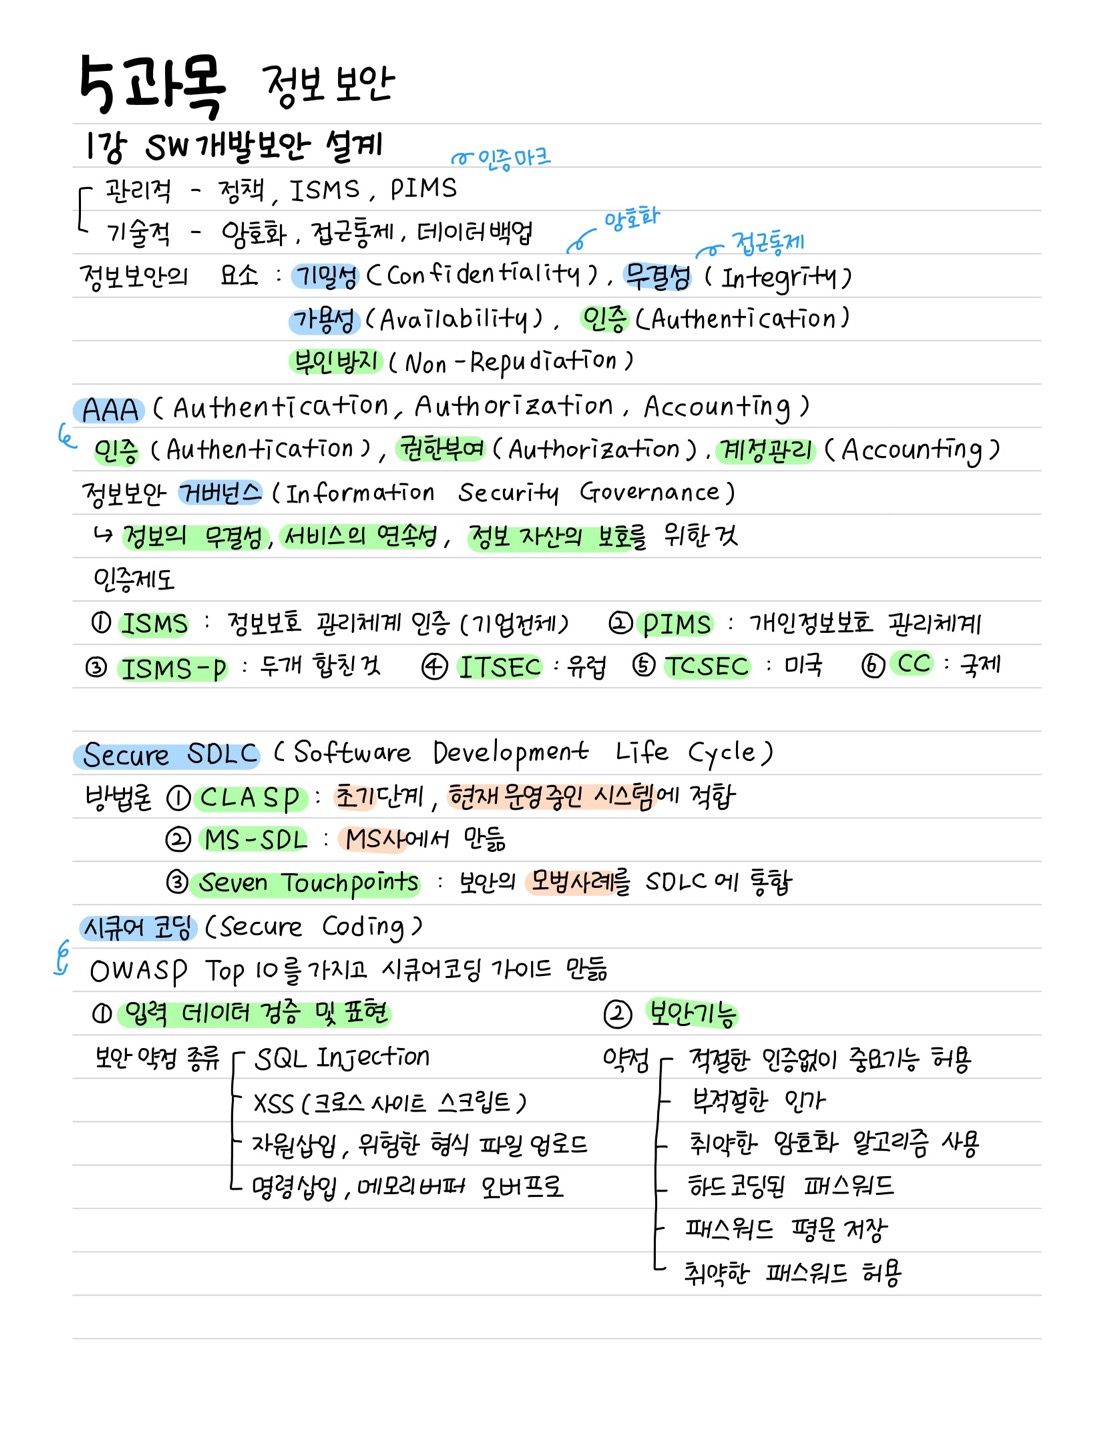 5과목 정보 보안
1강 SW개발보안 설계
인증마크
관리적 - 정책, ISMS, PIMS
기술적 - 암호화, 접근통제, 데이터백업
암호화
접근통제
정보보안의 요소 : 기밀성(Confidentiality), 무결성(Integrity)
가용성(Availability), 인증(Authentication)
부인방지(Non-Repudiation)
AAA (Authentication, Authorization, Accounting)
인증(Authentication), 권한부여(Authorization), 계정관리(Accounting)
정보보안 거버넌스(Information Security Governance)
↳ 정보의 무결성, 서비스의 연속성, 정보 자산의 보호를 위한것
인증제도
① ISMS : 정보보호 관리체계 인증(기업전체) ② PIMS : 개인정보보호 관리체계
③ ISMS-P : 두개 합친것 ④ ITSEC : 유럽 ⑤ TCSEC : 미국 ⑥ CC : 국제
Secure SDLC (Software Development Life Cycle)
방법론 ① CLASP : 초기단계, 현재운영중인 시스템에 적합
② MS-SDL : MS사에서 만듦
③ Seven Touchpoints : 보안의 모범사례를 SDLC에 통합
시큐어 코딩(Secure Coding)
OWASP Top 10를 가지고 시큐어코딩 가이드 만듦
① 입력 데이터 검증 및 표현
보안 약점 종류 SQL Injection
XSS(크로스 사이트 스크립트)
자원삽입, 위험한 형식 파일 업로드
명령삽입, 메모리버퍼 오버프로
② 보안기능
약점 적절한 인증없이 중요기능 허용
부적절한 인가
취약한 암호화 알고리즘 사용
하드코딩된 패스워드
패스워드 평문 저장
취약한 패스워드 허용